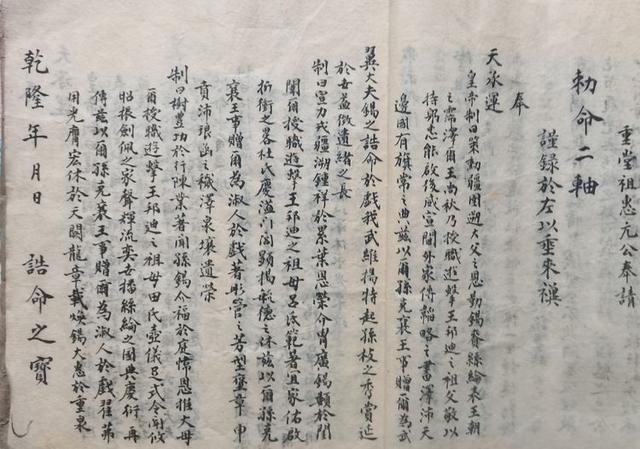 重堂祖悊元公奉請
勅命二軸
謹録於左以垂來禩
奉
天承運
皇帝制曰策勳疆圉遡大父之恩勤錫賚絲綸表王朝
之霈澤爾王尚秋乃授職遊擊王邱迪之祖父敬以
持躬忠能啟後威宣閫外家傳韜略之書澤沛天
邊國有旂常之典兹以爾孫克襄王事贈爾為武
翼大夫錫之誥命於戲我武維揚特起孫枝之秀賞延
於世益徵遺緒之長
制曰宣力戎疆溯鍾祥於累葉恩榮介胄廣錫類於閨
闈爾授職遊擊王邱迪之祖母呂氏範著宜家佑啟
折衝之畧慶溢顯揚毓德之休兹以爾孫克
襄王事贈爾為淑人於戲著彤管之芳型寵章申
賁沛琅函之穢澤泉壤遺榮
制曰樹豊功於行陳業著聞孫錫介福於庭幃恩推大母
爾授職遊擊王邱迪之祖母田氏壼儀足式令問攸
昭振劍佩之家聲輝流奕世播絲綸之國典慶衍再
傳兹以爾孫克襄王事贈爾為淑人於戲翟茀
用光膺宏休於天闕龍章載煥錫大惠於重泉
乾隆年月日 誥命之寶